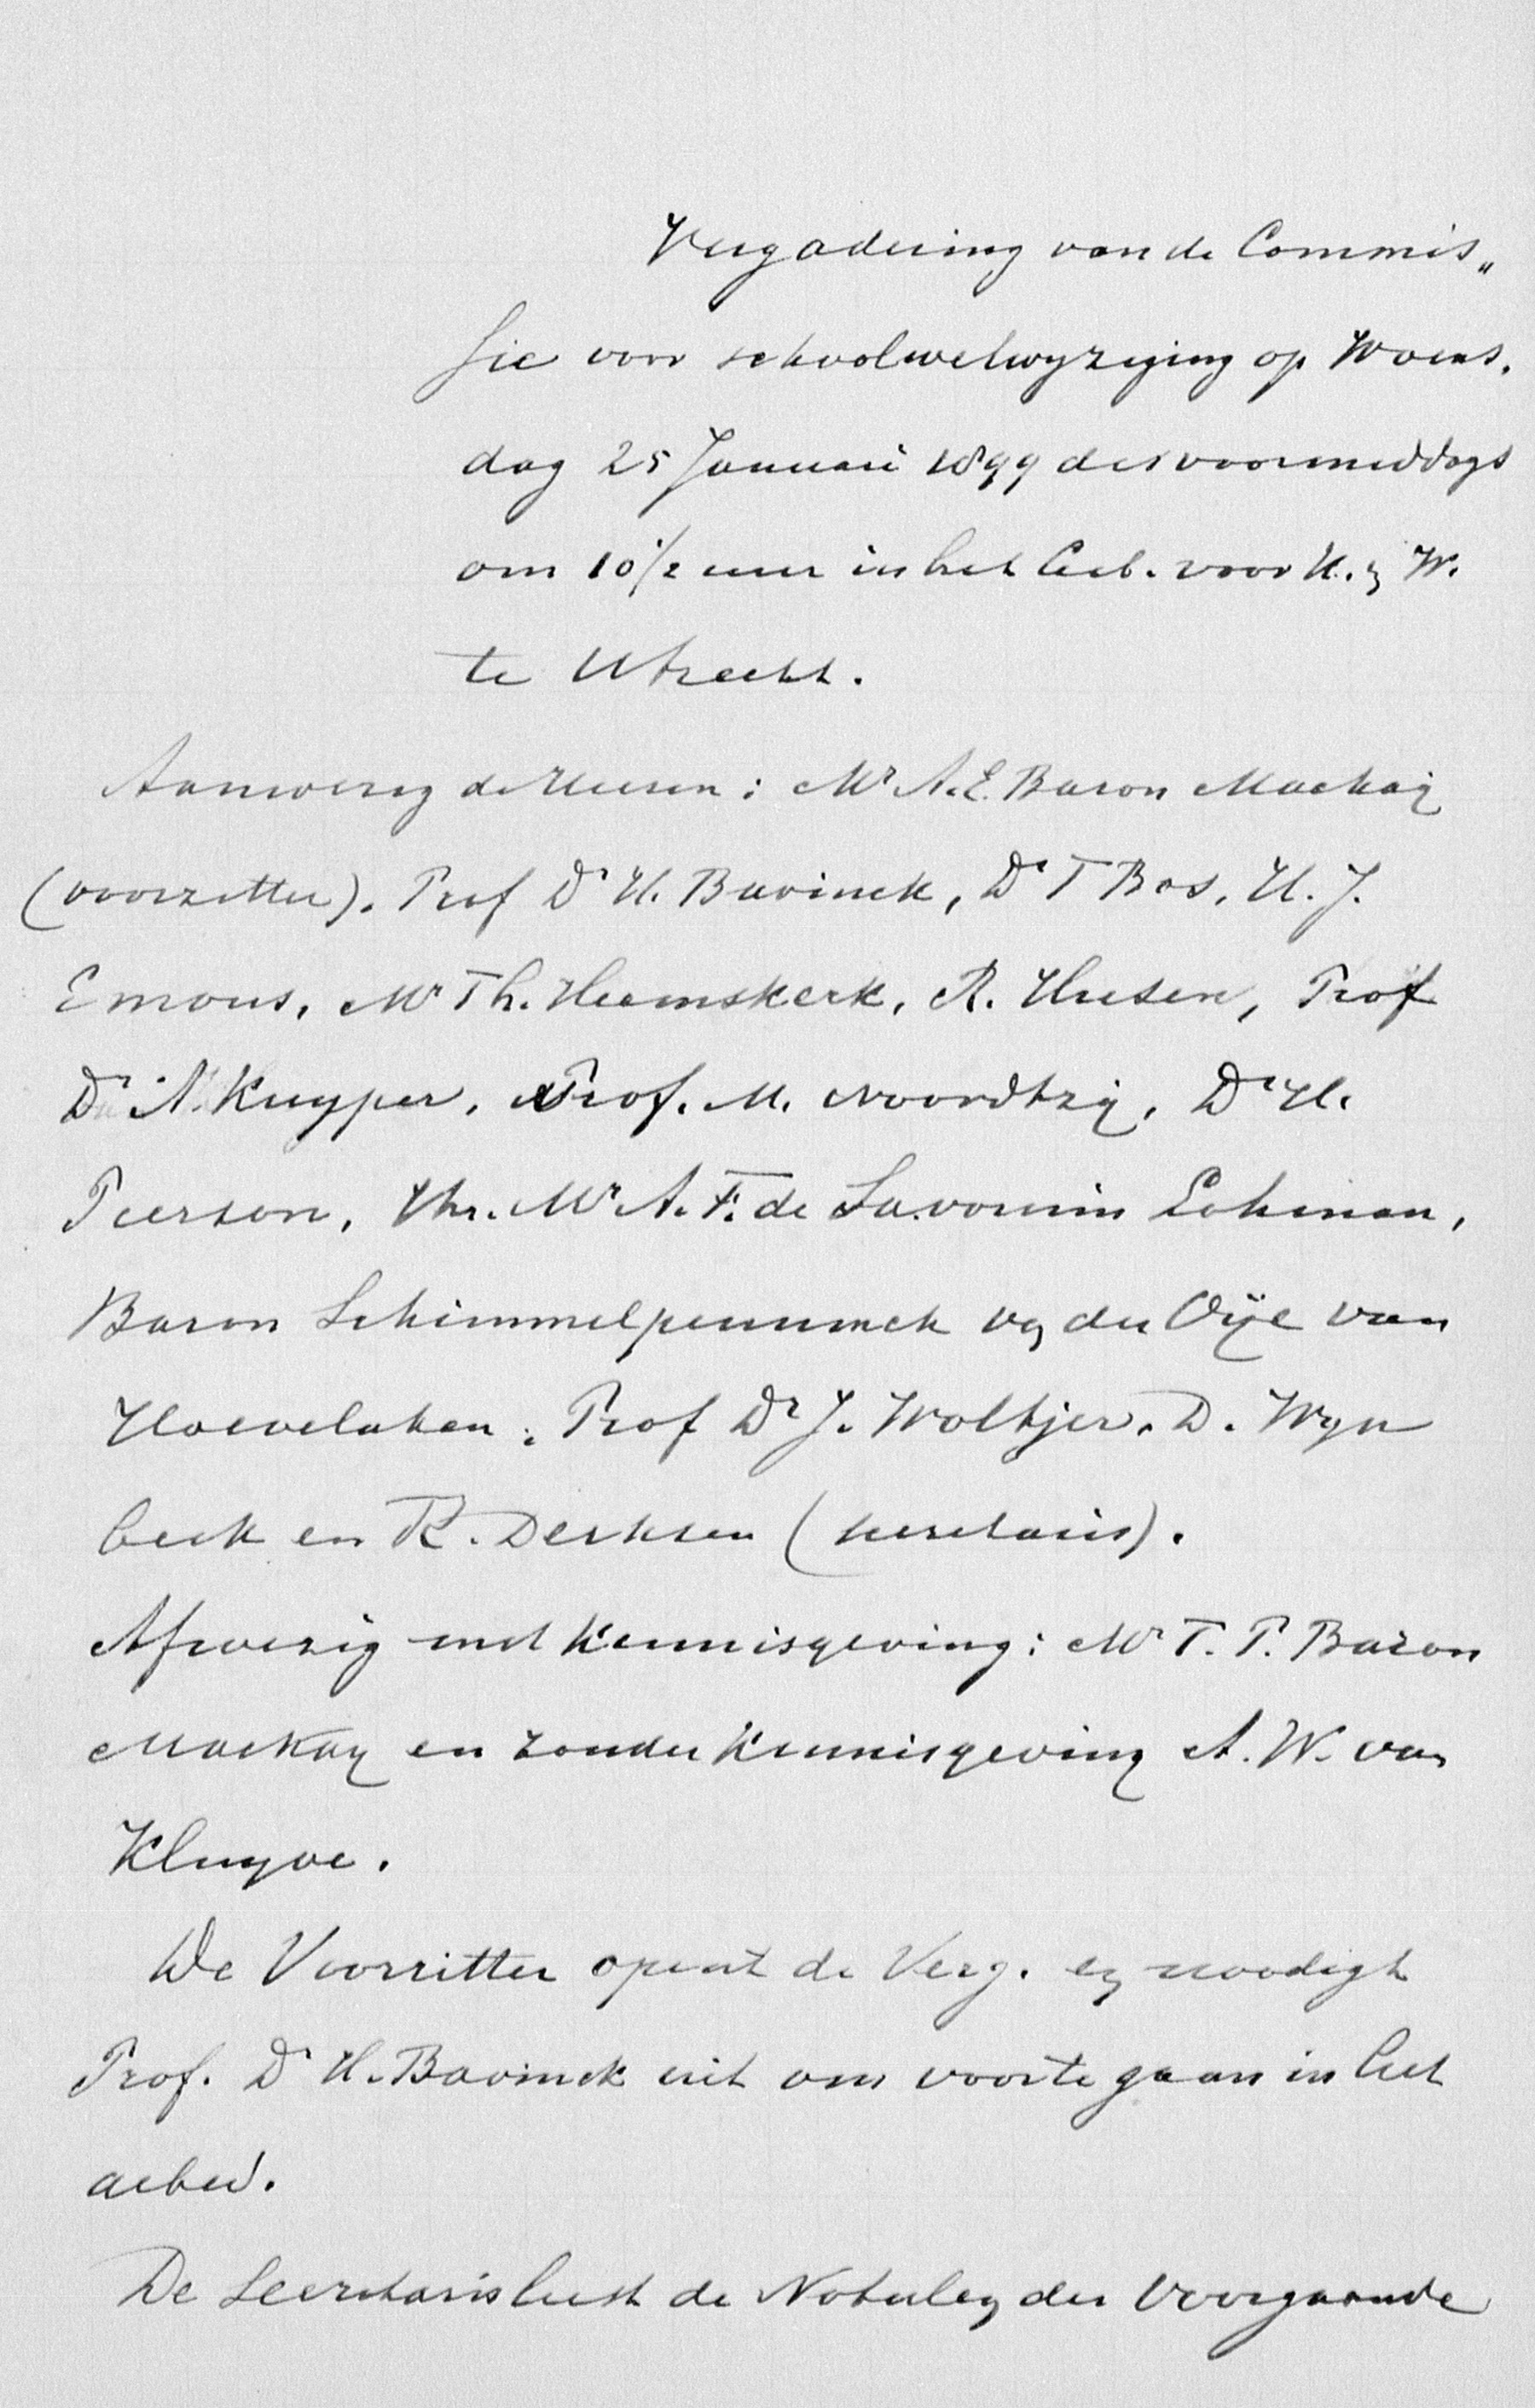 Vergadering van de Commis„
sie voor schoolwetwyziging op Woens.
dag 25 Januari 1899 des voormiddags
om 10 1/2 uur in het Geb. voor K. en W.
te Utrecht.
Aanwezig de Heeren: Mr A.E. Baron Mackay
(voorzitter). Prof Dr H. Bavinck, Dr T Bos, H. J.
Emous, Mr Th. Heemskerk, R. Husen, Prof
Dr A. Kuyper, Prof. M. Noordtzij, Dr H.
Pierson, Jhr. Mr A. F. de Savornin Lohman,
Baron Schimmelpenninck van der Oije van
Hoevelaken, Prof Dr J. Woltjer. D. Wyn
beek en R. Derksen (secretaris).
Afwezig met kennisgeving: Mr T. P. Baron
Mackay en zonder kennisgeving A. W. van
Kluyve.
De Voorzitter opent de Verg. en noodigt
Prof. Dr H. Bavinck uit om voorte gaan in het
gebed.
De Secretaris leest de Notulen der voorgaande